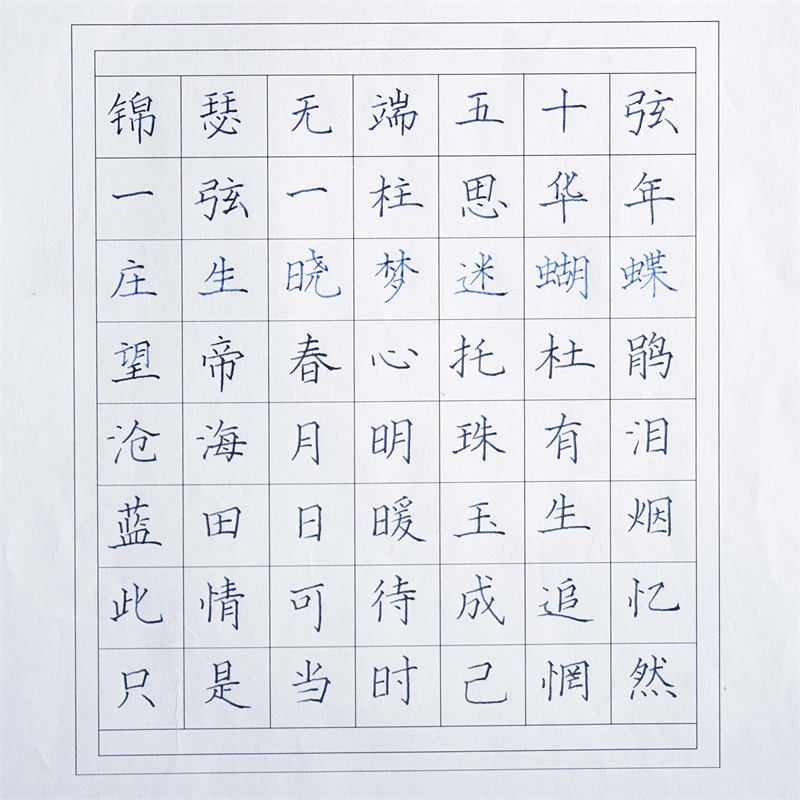 锦瑟无端五十弦
一弦一柱思华年
庄生晓梦迷蝴蝶
望帝春心托杜鹃
沧海月明珠有泪
蓝田日暖玉生烟
此情可待成追忆
只是当时己惘然